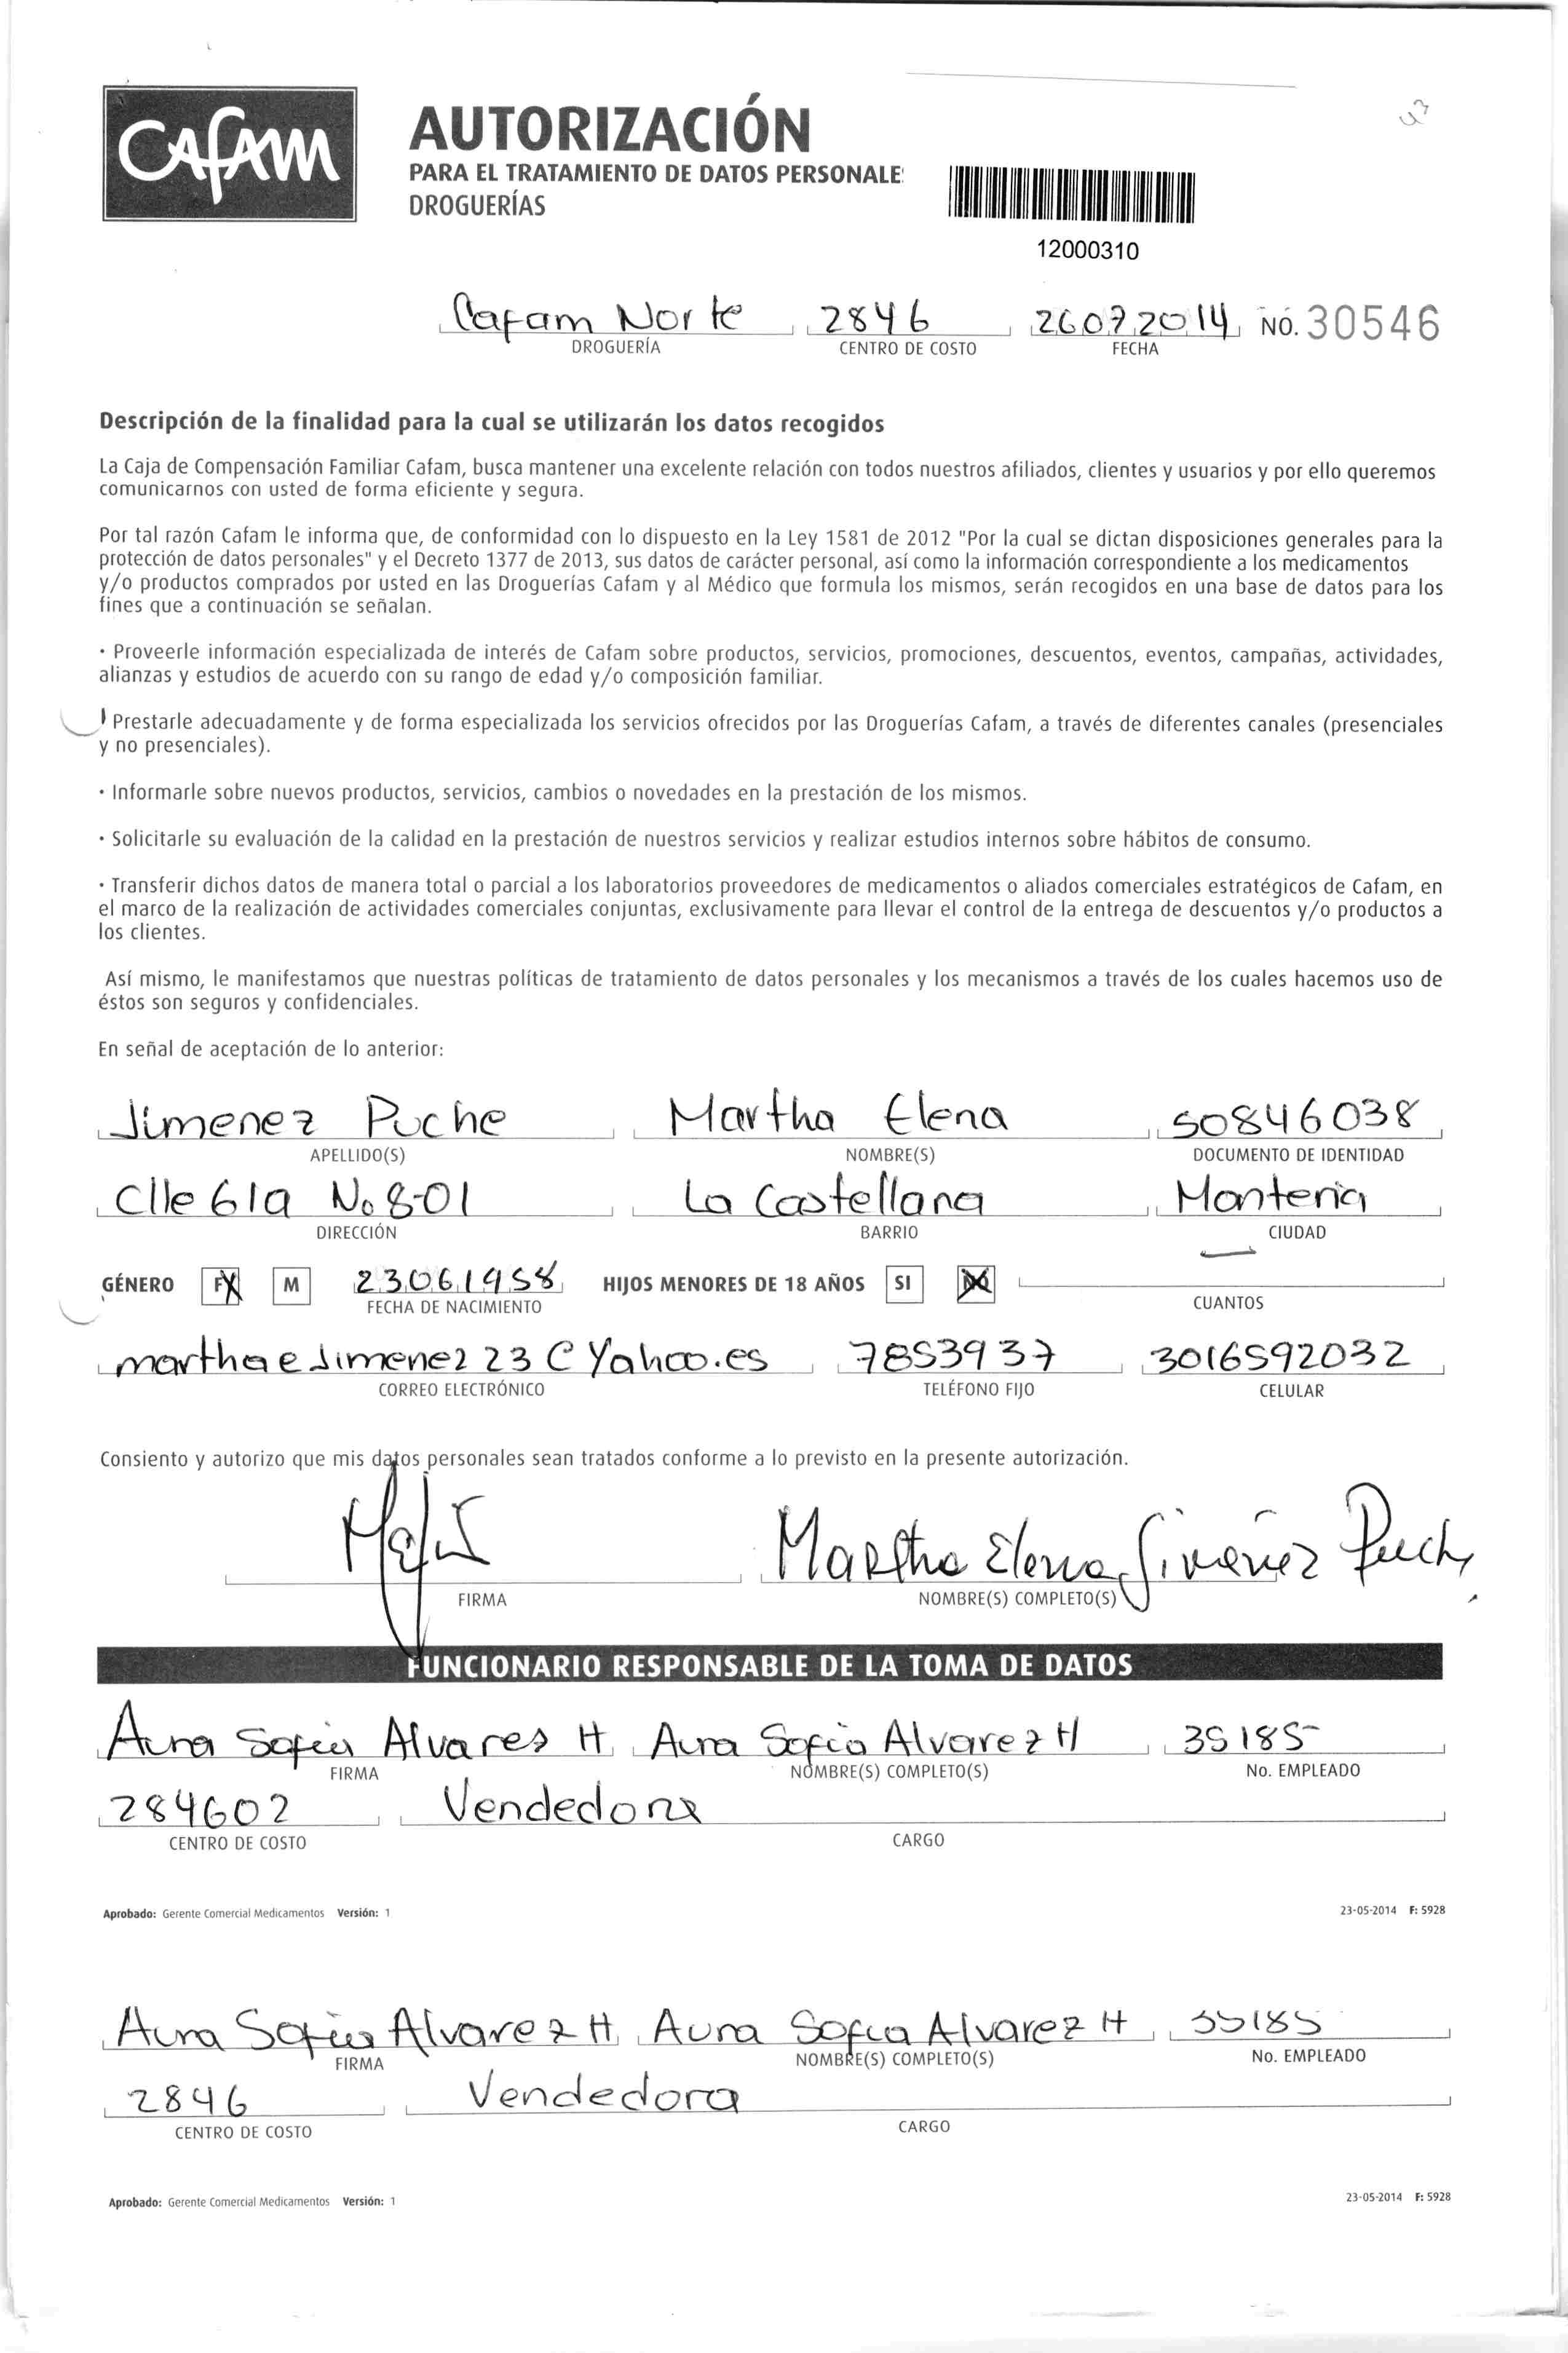 CAFAM
AUTORIZACIÓN
PARA EL TRATAMIENTO DE DATOS PERSONALE
DROGUERÍAS
12000310
Cafam Norte 2846 26072014 NO. 30546
DROGUERÍA CENTRO DE COSTO FECHA
Descripción de la finalidad para la cual se utilizarán los datos recogidos
La Caja de Compensación Familiar Cafam, busca mantener una excelente relación con todos nuestros afiliados, clientes y usuarios y por ello queremos
comunicarnos con usted de forma eficiente y segura.
Por tal razón Cafam le informa que, de conformidad con lo dispuesto en la Ley 1581 de 2012 "Por la cual se dictan disposiciones generales para la
protección de datos personales" y el Decreto 1377 de 2013, sus datos de carácter personal, así como la información correspondiente a los medicamentos
y/o productos comprados por usted en las Droguerías Cafam y al Médico que formula los mismos, serán recogidos en una base de datos para los
fines que a continuación se señalan.
· Proveerle información especializada de interés de Cafam sobre productos, servicios, promociones, descuentos, eventos, campañas, actividades,
alianzas y estudios de acuerdo con su rango de edad y/o composición familiar.
Prestarle adecuadamente y de forma especializada los servicios ofrecidos por las Droguerías Cafam, a través de diferentes canales (presenciales
y no presenciales).
· Informarle sobre nuevos productos, servicios, cambios o novedades en la prestación de los mismos.
· Solicitarle su evaluación de la calidad en la prestación de nuestros servicios y realizar estudios internos sobre hábitos de consumo.
· Transferir dichos datos de manera total o parcial a los laboratorios proveedores de medicamentos o aliados comerciales estratégicos de Cafam, en
el marco de la realización de actividades comerciales conjuntas, exclusivamente para llevar el control de la entrega de descuentos y/o productos a
los clientes.
Así mismo, le manifestamos que nuestras políticas de tratamiento de datos personales y los mecanismos a través de los cuales hacemos uso de
éstos son seguros y confidenciales.
En señal de aceptación de lo anterior:
Jimenez Puche Martha Elena 50846038
APELLIDO(S) NOMBRE(S) DOCUMENTO DE IDENTIDAD
Clle 61a No 8-01 La Castellana Monteria
DIRECCIÓN BARRIO CIUDAD
GÉNERO F M 23061958 HIJOS MENORES DE 18 AÑOS SI NO
FECHA DE NACIMIENTO CUANTOS
marthaeJimenez23 C Yahoo.es 7853937 3016592032
CORREO ELECTRÓNICO TELÉFONO FIJO CELULAR
Consiento y autorizo que mis datos personales sean tratados conforme a lo previsto en la presente autorización.
Martha Elena Jiménez Puche
FIRMA NOMBRE(S) COMPLETO(S)
FUNCIONARIO RESPONSABLE DE LA TOMA DE DATOS
Aura Sofia Alvarez H Aura Sofia Alvarez H 35185
FIRMA NOMBRE(S) COMPLETO(S) No. EMPLEADO
284602 Vendedora
CENTRO DE COSTO CARGO
Aprobado: Gerente Comercial Medicamentos Versión: 1 23-05-2014 F: 5928
Aura Sofia Alvarez H Aura Sofia Alvarez H 35185
FIRMA NOMBRE(S) COMPLETO(S) No. EMPLEADO
2846 Vendedora
CENTRO DE COSTO CARGO
Aprobado: Gerente Comercial Medicamentos Versión: 1 23-05-2014 F: 5928